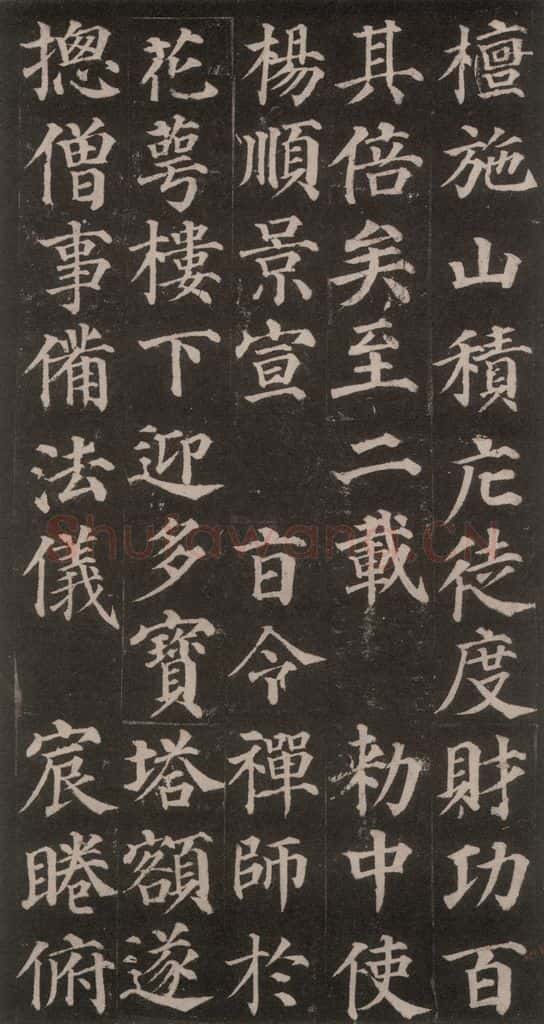 檀施山積庀徒度財功百
其倍矣至二載 勑中使
楊順景宣 旨令禪師於
花萼樓下迎多寶塔額遂
揔僧事備法儀 宸睠俯
Shufawang.CN